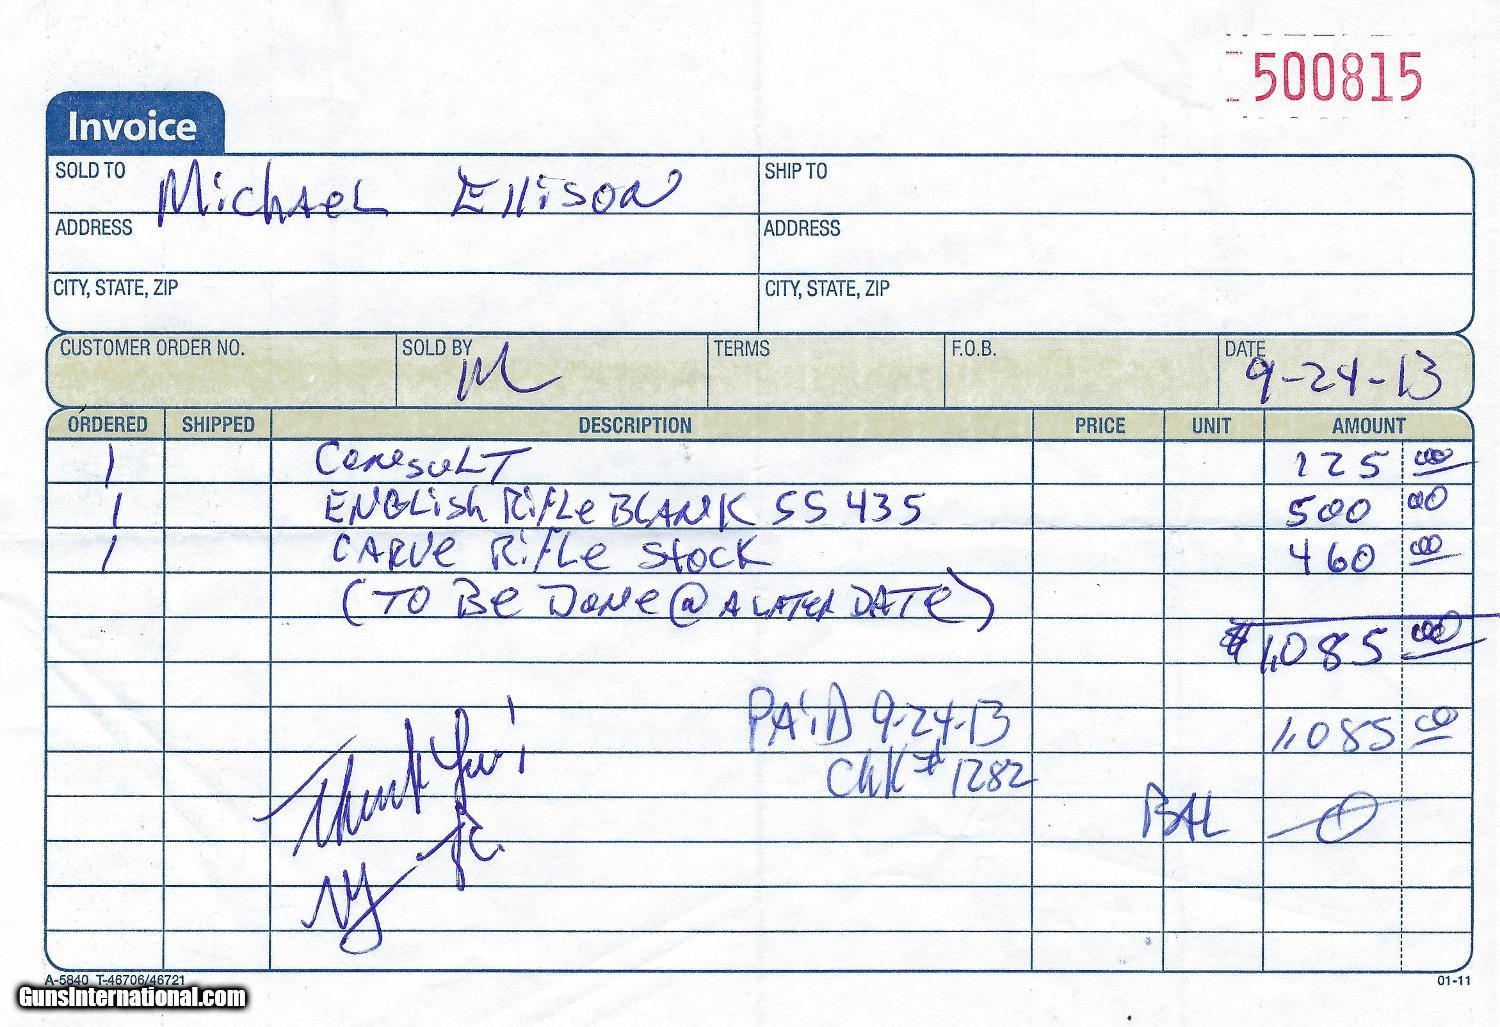 500815
Invoice
SOLD TO Michael Ellison SHIP TO
ADDRESS ADDRESS
CITY, STATE, ZIP CITY, STATE, ZIP
CUSTOMER ORDER NO. SOLD BY M TERMS F.O.B. DATE 9-24-13
ORDERED SHIPPED DESCRIPTION PRICE UNIT AMOUNT
1 Consult 125 00
1 ENGLish RiFLe BLANK SS 435 500 00
1 CARVe RiFLe Stock 460 00
(TO Be DONe @ A LATER DATE)
$1,085 00
PAiD 9-24-13 1,085 00
Thank You! CHK #1282
BAL 0
A-5840 T-46706/46721 01-11
GunsInternational.com